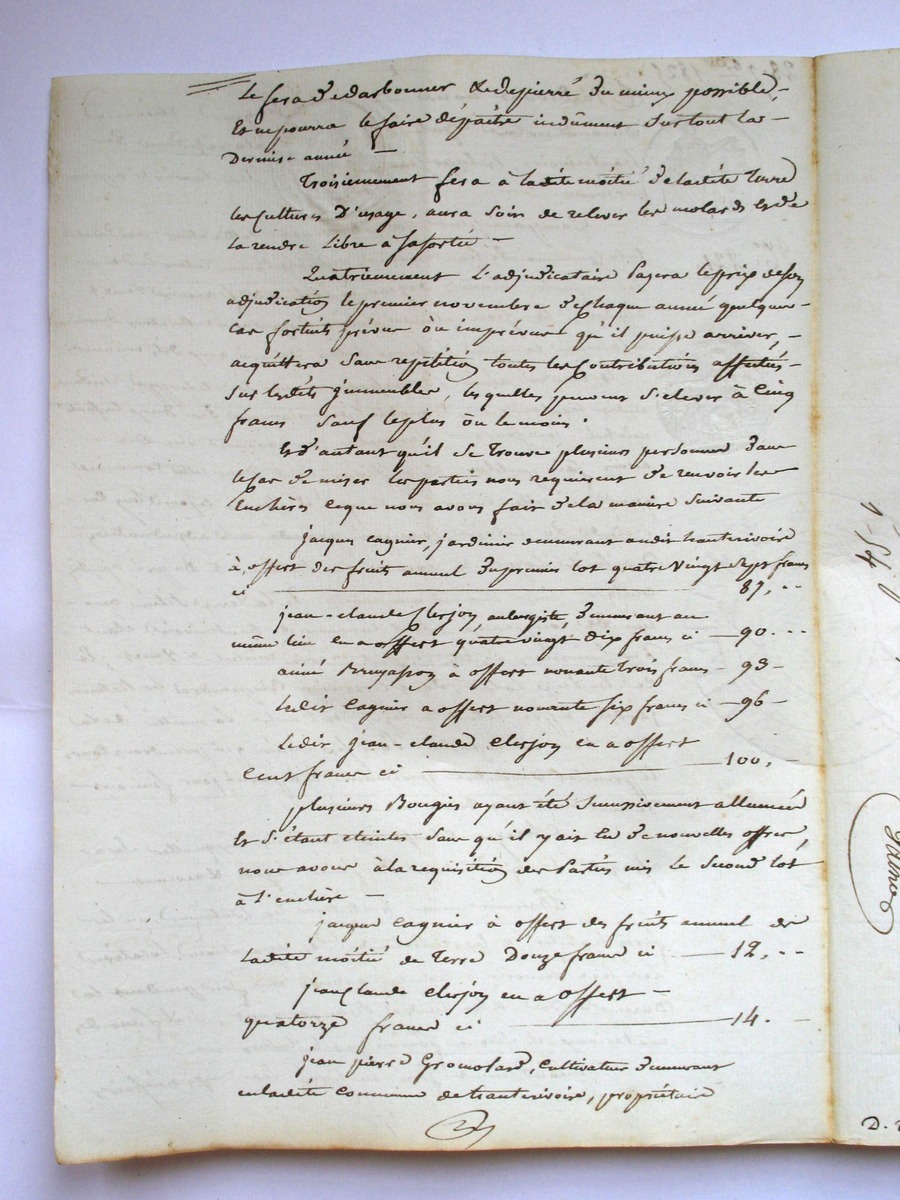 le fera d'edarbonner & edepierré du mieux possible,
Et ne pourra le faire dépaitre indûment surtout la
Derniere année
Troisiemement fera à ladite moitié de ladite Terre
les Cultures D'usage, aura soin de relever les molards et de
la rendre Libre à sa sortie
Quatriemement L'adjudicataire Payera le prix de son
adjudication le premier novembre de Chaque année quelques
cas fortuits prévus ou imprévus qu'il puisse arriver,
acquittera sans repétition toutes les Contributions affectées
sur lesdits immeubles, lesquelles peuvent s'elever à Cinq
francs sauf le plus ou le moins.
Et d'autant qu'il se trouve plusieurs personnes dans
le cas de miser les parties nous requierent de recevoir les
Enchères ce que nous avons fait de la maniere suivante
jacques Cagnier, jardinier demeurant audit hauterivoire
à offert des fruits annuel du premier lot quatre Vingt sept francs
ci 87, --
jean-claude Clerjon, aubergiste, demeurant au
même lieu en a offert quatre vingt dix francs ci 90. --
aimé à offert nonante trois francs 93
Ledit Cagnier a offert nonente six francs ci 96
Ledit jean-claude Clerjon en a offert
Cent francs ci 100,
plusieurs Bougies ayant été sucessivement allumées
Et s'étant eteintes sans qu'il y ait Eu de nouvelles offres
nous avons à la requisition des Parties mis le Second lot
à l'enchère
jacques Cagnier à offert des fruits annuel de
Ladite moitié de Terre Douze francs ci 12, --
jean Claude Clerjon en a offert
quatorze francs ci 14.
jean pierre Gromolard, Cultivateur demeurant
en ladite Commune de hauterivoire, propriétaire